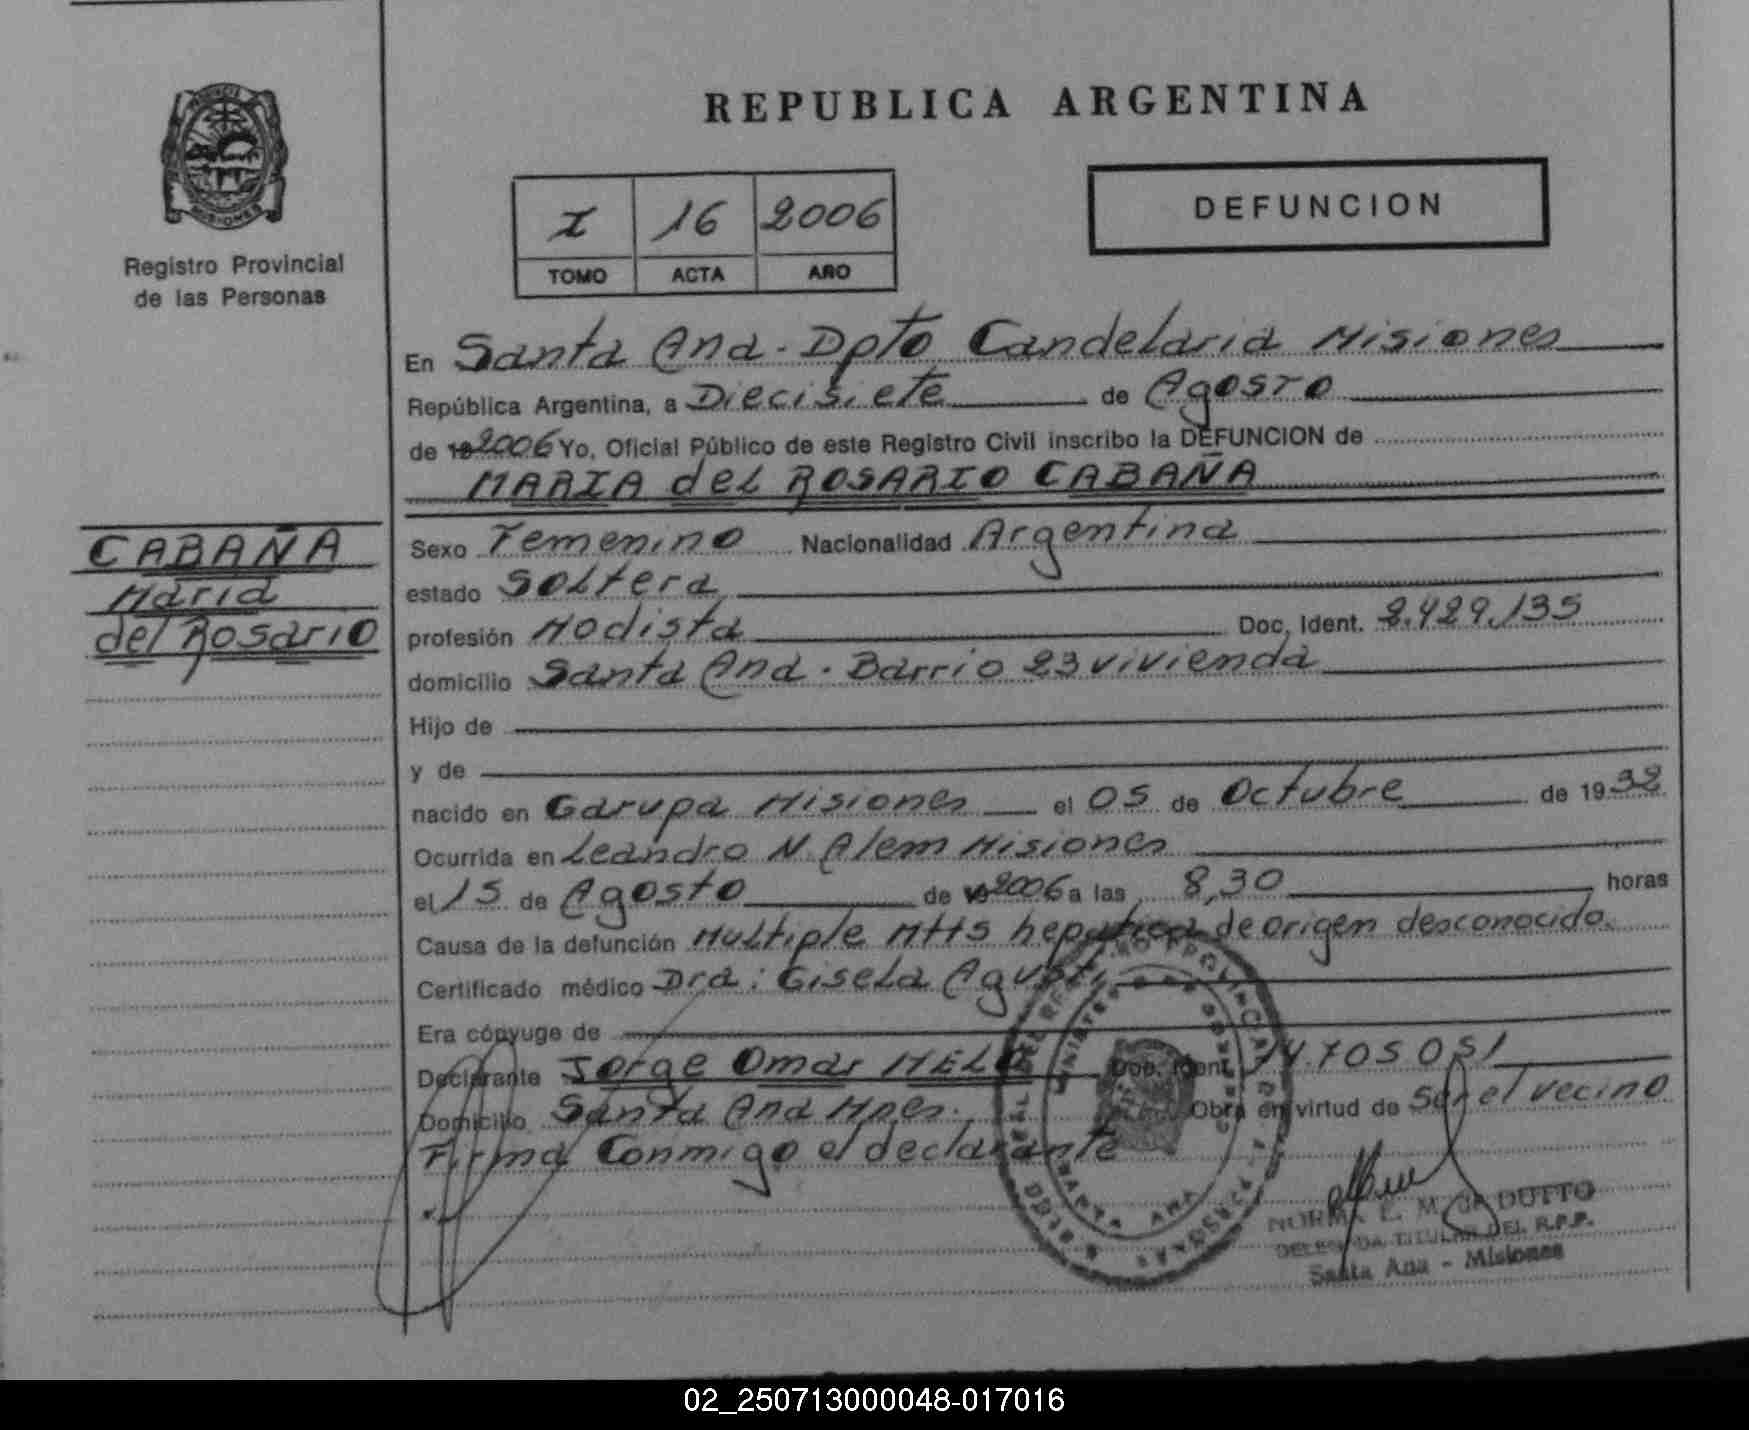 REPUBLICA ARGENTINA
PROVINCIA
MISIONES
Registro Provincial
de las Personas
I 16 2006
TOMO ACTA AÑO
DEFUNCION
En Santa Ana - Dpto Candelaria Misiones
República Argentina, a Diecisiete de Agosto
de 19 2006 Yo, Oficial Público de este Registro Civil inscribo la DEFUNCION de
MARIA del ROSARIO CABAÑA
CABAÑA
Maria
del Rosario
Sexo Femenino Nacionalidad Argentina
estado Soltera
profesión Modista Doc. Ident. 2.429.135
domicilio Santa Ana - Barrio 23 vivienda
Hijo de
y de
nacido en Garupa Misiones el 05 de Octubre de 1932
Ocurrida en Leandro N. Alem Misiones
el 15 de Agosto de 19 2006 a las 8,30 horas
Causa de la defunción Multiple MHS hepatica de origen desconocido.
Certificado médico Dra: Gisela Agusti
Era cónyuge de
Declarante Jorge Omar MELO Doc. Ident. 14.705.051
Domicilio Santa Ana Mnes. Obra en virtud de Ser el vecino
Firma Conmigo el declarante
SANTA ANA
NORMA L. M. de DUTTO
DELEGADA TITULAR DEL R.P.P.
Santa Ana - Misiones
02_250713000048-017016